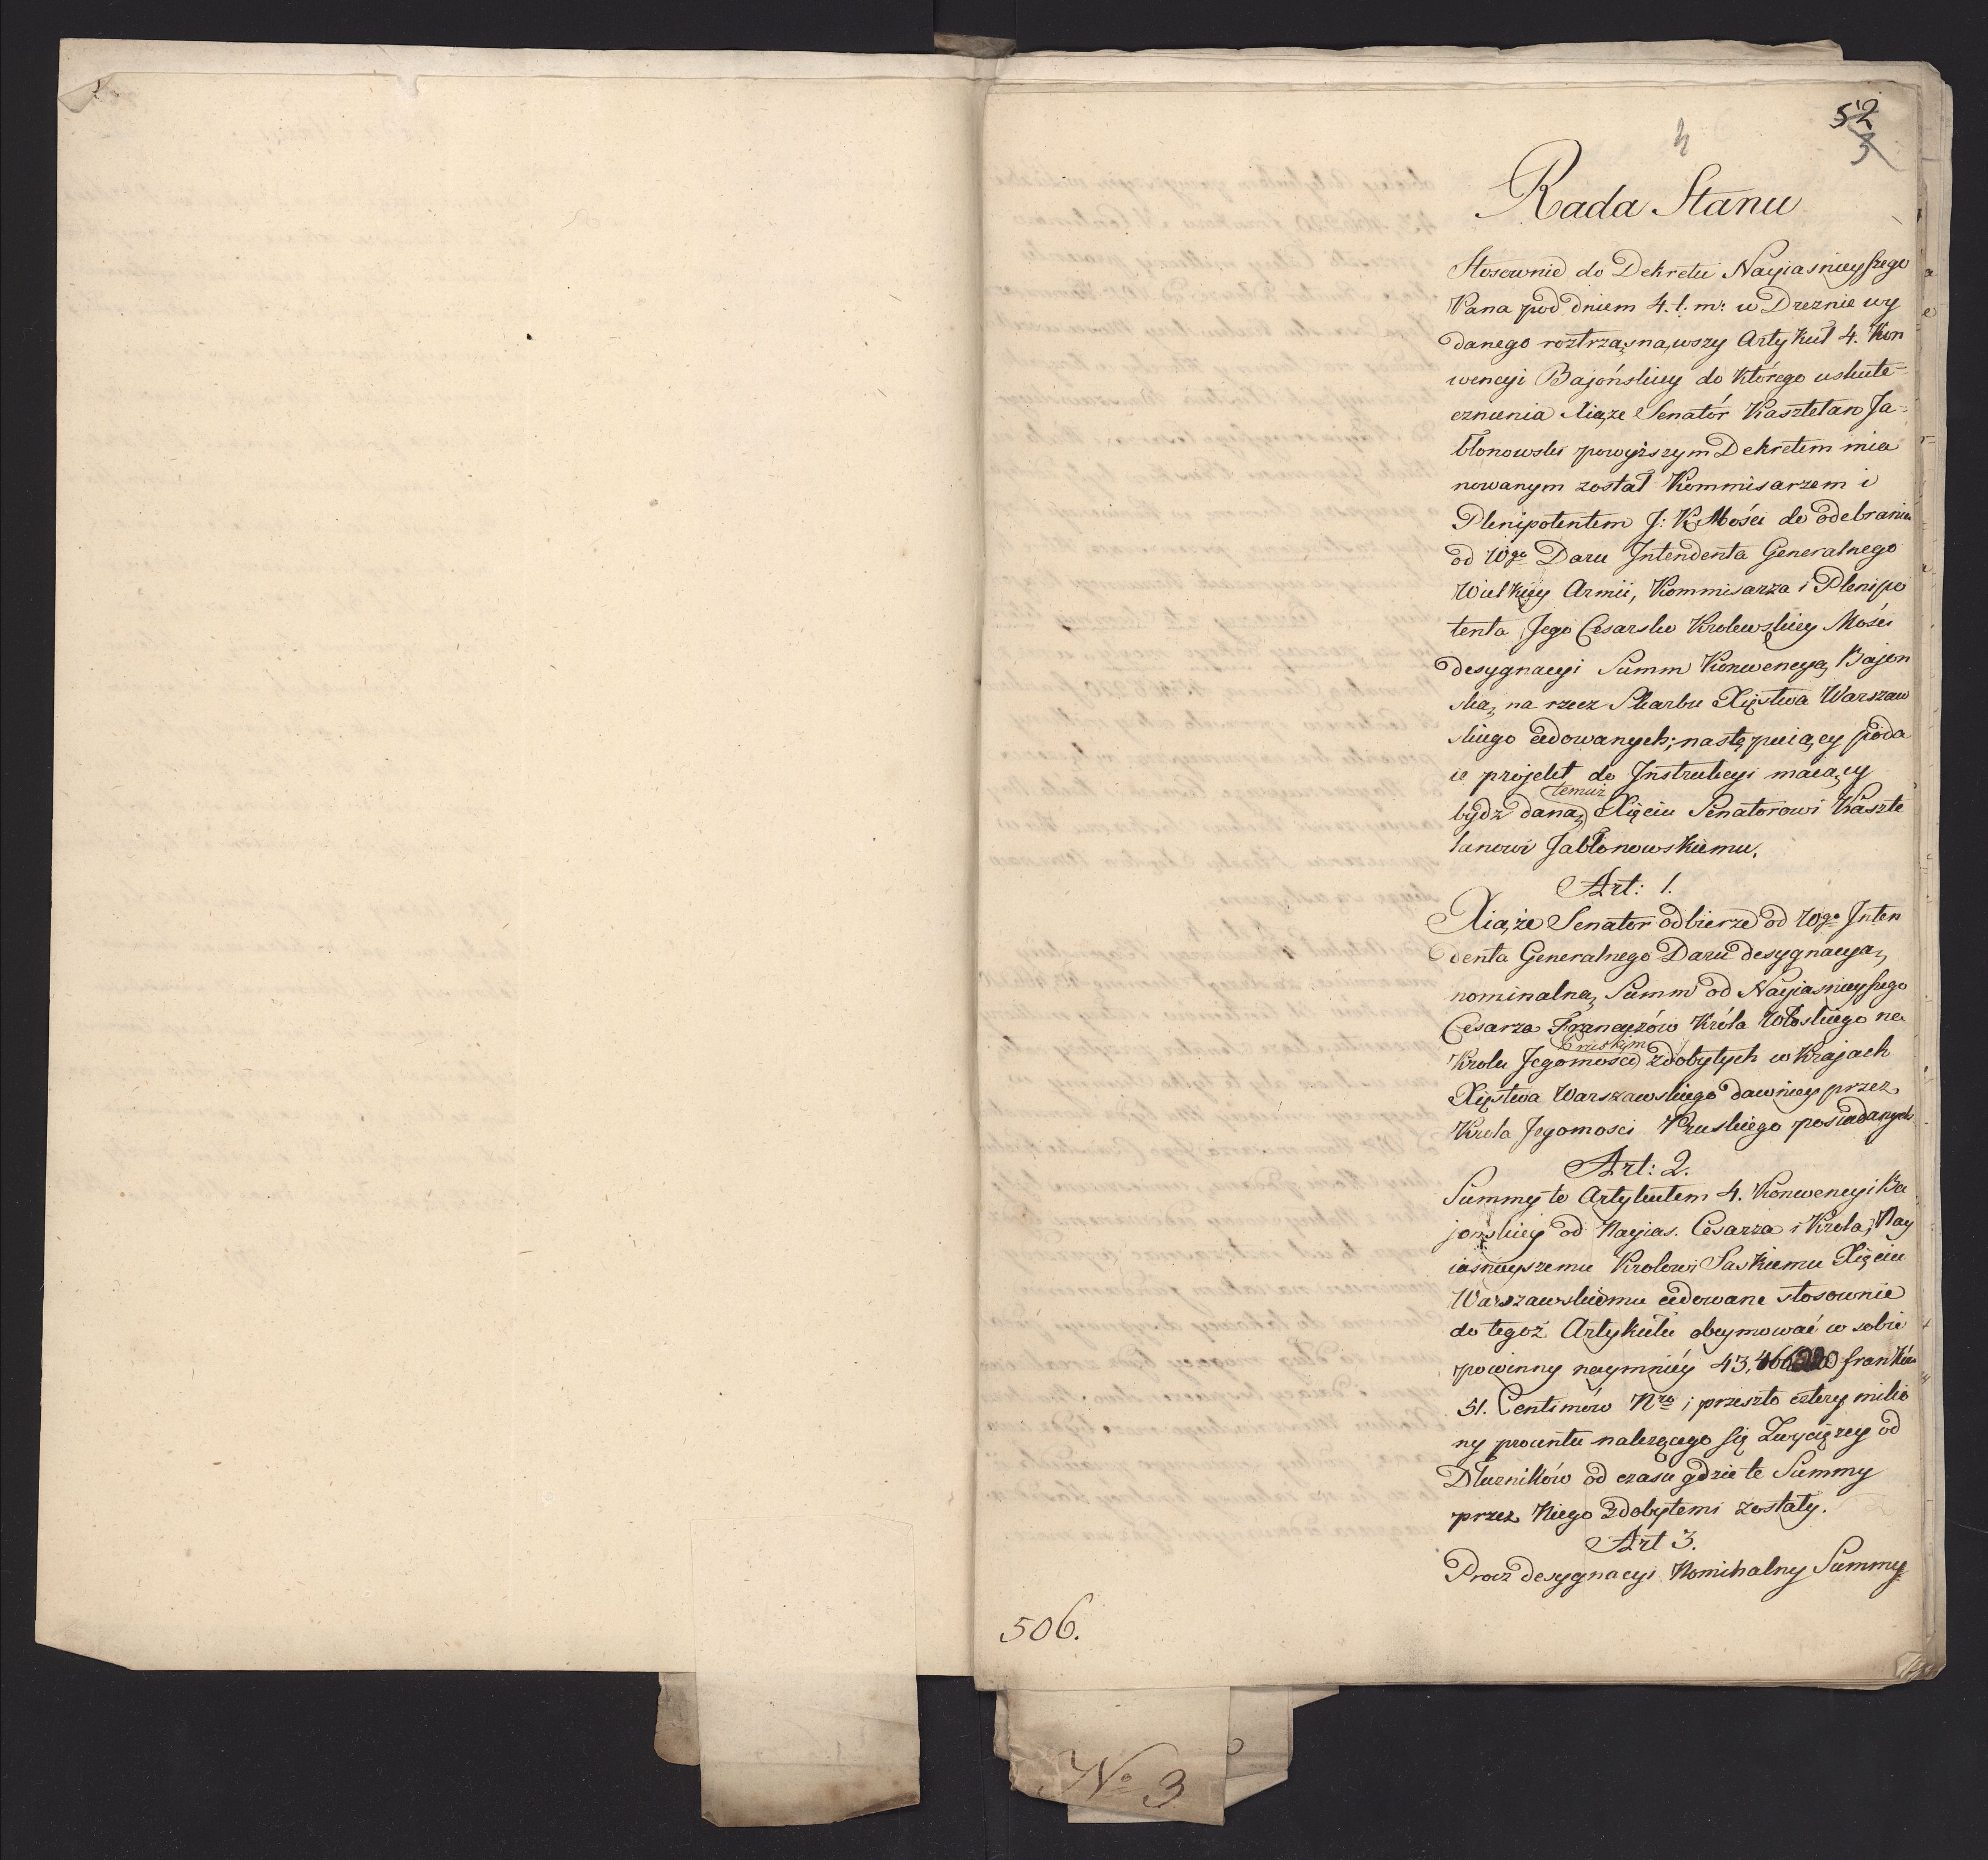 52
3
4
Rada Stanu
Stosownie do Dekretu Nayiasnieyszego
Pana pod dniem 4. t. m: w Dreznie wy
danego roztrząsnąwszy Artykuł 4. Kon
wencyi Bajońskiey do którego uskute=
cznienia Xiąże Senatór Kasztelan Ja=
błonowski powyższym Dekretem mia
nowanym został Kommisarzem i
Plenipotentem J: K. Mości do odebrania
od Wgo Daru Intendenta Generalnego
Wielkiey Armii, Kommisarza i Plenipo
tenta Jego Cesarsko Krolewskiey Mości
desygnacyi Summ Konwencyą Bajon
ską na rzecz Skarbu Xięstwa Warszaw
skiego cedowanych; następuiący poda
ie projekt do Instrukcyi maiący
temuż
bydz daną Xięciu Senatorowi Kaszte
lanowi Jabłonowskiemu.
Art: 1.
Xiąże Senator odbierze od Wgo Inten
denta Generalnego Daru desygnacyą
nominalną Summ od Nayiasnieyszego
Cesarza Francuzów Króla Włoskiego na
Pruskim
Krolu Jegomości zdobytych w Krajach
Xięstwa Warszawskiego dawniey przez
Krola Jegomosci Pruskiego posiadanych
Art: 2.
Summy te Artykułem 4. Konwencyi Ba
jonskiey od Nayias. Cesarza i Krola, Nay
iasnieyszemu Krolowi Saskiemu Xięciu
Warszawskiemu cedowane stosownie
do tegoż Artykułu obeymować w sobie
powinny naymniéy 43, franków
51. Centimów Nro i przeszło cztery milio
ny procentu należącego się Zwycięzcy od
Dłuzników od czasu gdzie te Summy
przez Niego zdobytemi zostały.
Art 3.
Procz desygnacyi Nominalny Summy
506.
No 3